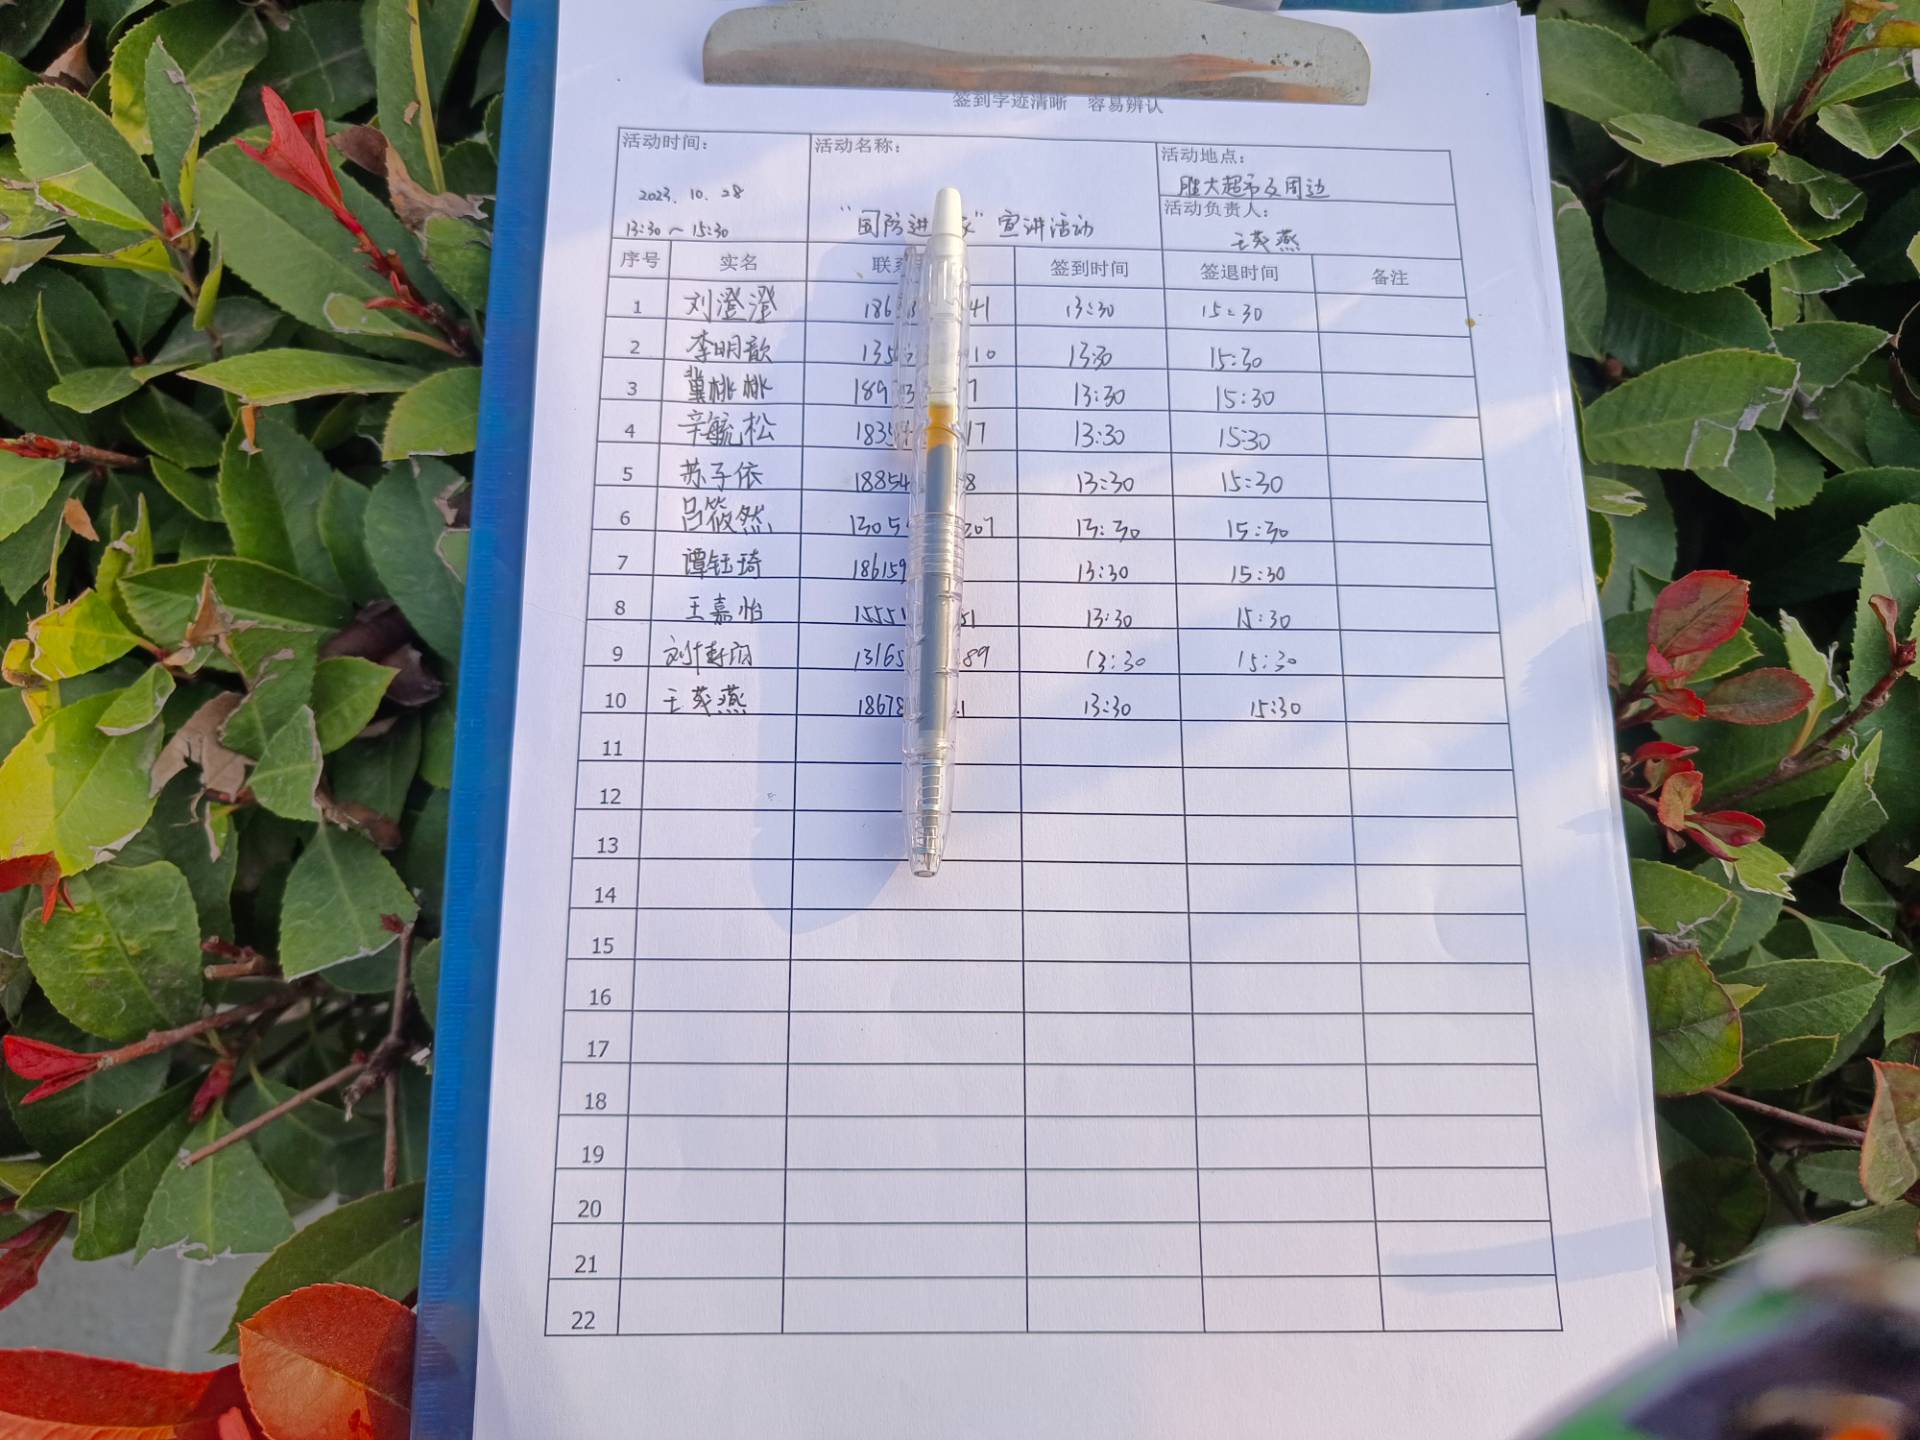 签到字迹清晰 容易辨认
活动时间: 活动名称: 活动地点:
胜大超市及周边
2023.10.28 活动负责人:
13:30~15:30 "国防进 " 宣讲活动 王茂燕
序号 实名 联系 签到时间 签退时间 备注
1 刘澄澄 186 41 13:30 15:30
2 李明歆 135 10 13:30 15:30
3 冀桃桃 189 7 13:30 15:30
4 辛毓松 1835 17 13:30 15:30
5 苏子依 18854 8 13:30 15:30
6 吕筱然 13054 207 13:30 15:30
7 谭钰琦 186159 13:30 15:30
8 王嘉怡 15551 51 13:30 15:30
9 刘 13165 89 13:30 15:30
10 王茂燕 18678 1 13:30 15:30
11
12
13
14
15
16
17
18
19
20
21
22